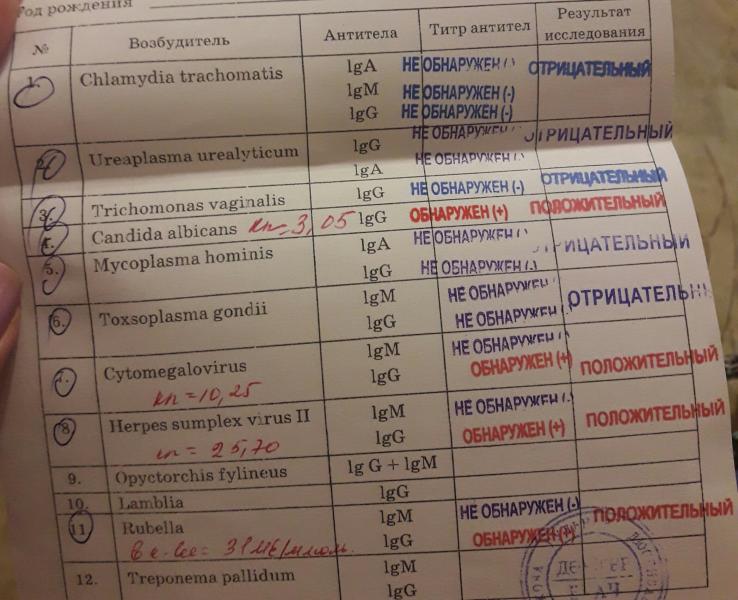 Год рождения
№ Возбудитель Антитела Титр антител Результат исследования
1. Chlamydia trachomatis lgA НЕ ОБНАРУЖЕН (-) ОТРИЦАТЕЛЬНЫЙ
lgM НЕ ОБНАРУЖЕН (-)
lgG НЕ ОБНАРУЖЕН (-)
2. Ureaplasma urealyticum lgG НЕ ОБНАРУЖЕН (-) ОТРИЦАТЕЛЬНЫЙ
lgA НЕ ОБНАРУЖЕН (-)
3. Trichomonas vaginalis lgG НЕ ОБНАРУЖЕН (-) ОТРИЦАТЕЛЬНЫЙ
4. Candida albicans кп=3,05 lgG ОБНАРУЖЕН (+) ПОЛОЖИТЕЛЬНЫЙ
5. Mycoplasma hominis lgA НЕ ОБНАРУЖЕН (-) ОТРИЦАТЕЛЬНЫЙ
lgG НЕ ОБНАРУЖЕН (-)
6. Toxsoplasma gondii lgM НЕ ОБНАРУЖЕН ОТРИЦАТЕЛЬНЫЙ
lgG НЕ ОБНАРУЖЕН (-)
7. Cytomegalovirus lgM НЕ ОБНАРУЖЕН (-)
кп=10,25 lgG ОБНАРУЖЕН (+) ПОЛОЖИТЕЛЬНЫЙ
8. Herpes sumplex virus II lgM НЕ ОБНАРУЖЕН (-) ПОЛОЖИТЕЛЬНЫЙ
кп = 25,70 lgG ОБНАРУЖЕН (+)
9. Opyctorchis fylineus lg G + lgM
10. Lamblia lgG
11 Rubella lgM НЕ ОБНАРУЖЕН (-) ПОЛОЖИТЕЛЬНЫЙ
lgG ОБНАРУЖЕН (+)
12. Treponema pallidum lgM
lgG